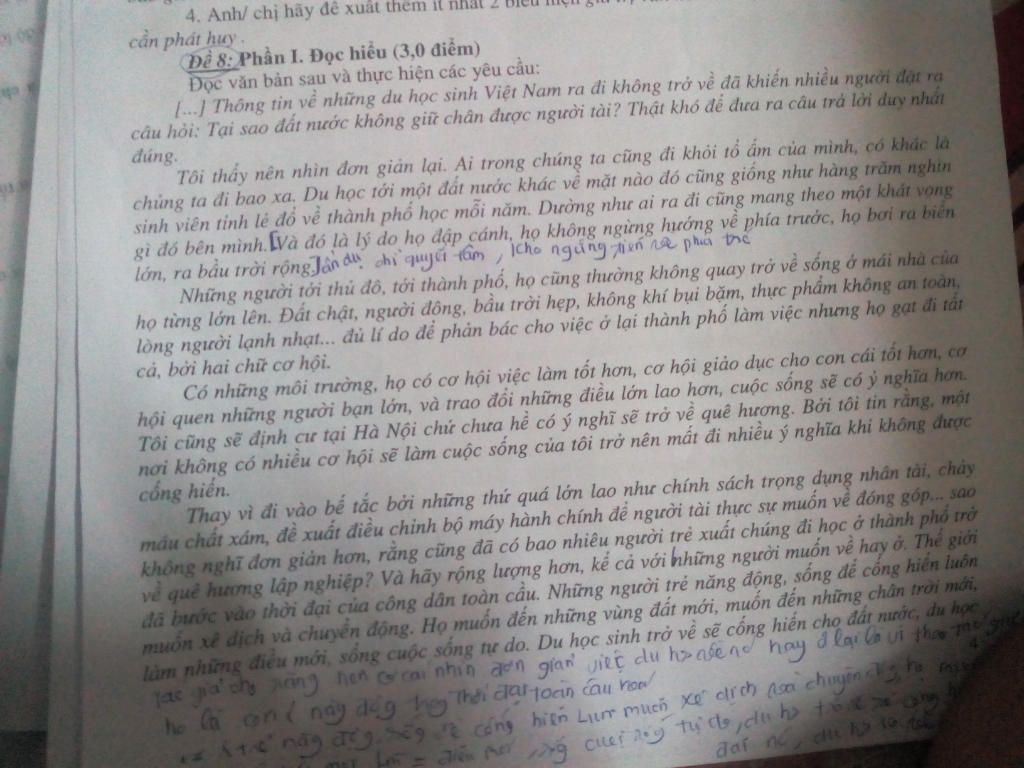 4. Anh/ chị hãy đề xuất thêm ít nhất 2 biểu hiện
cần phát huy .
Đề 8: Phần I. Đọc hiểu (3,0 điểm)
Đọc văn bản sau và thực hiện các yêu cầu:
[...] Thông tin về những du học sinh Việt Nam ra đi không trở về đã khiến nhiều người đặt ra
câu hỏi: Tại sao đất nước không giữ chân được người tài? Thật khó để đưa ra câu trả lời duy nhất
đúng.
Tôi thấy nên nhìn đơn giản lại. Ai trong chúng ta cũng đi khỏi tổ ấm của mình, có khác là
chúng ta đi bao xa. Du học tới một đất nước khác về mặt nào đó cũng giống như hàng trăm nghìn
sinh viên tỉnh lẻ đổ về thành phố học mỗi năm. Dường như ai ra đi cũng mang theo một khát vọng
gì đó bên mình. [Và đó là lý do họ đập cánh, họ không ngừng hướng về phía trước, họ bơi ra biển
lớn, ra bầu trời rộng.] ẩn dụ chỉ quyết tâm, kho ngừng tiến về phía trc
Những người tới thủ đô, tới thành phố, họ cũng thường không quay trở về sống ở mái nhà của
họ từng lớn lên. Đất chật, người đông, bầu trời hẹp, không khí bụi bặm, thực phẩm không an toàn,
lòng người lạnh nhạt... đủ lí do để phản bác cho việc ở lại thành phố làm việc nhưng họ gạt đi tất
cả, bởi hai chữ cơ hội.
Có những môi trường, họ có cơ hội việc làm tốt hơn, cơ hội giáo dục cho con cái tốt hơn, cơ
hội quen những người bạn lớn, và trao đổi những điều lớn lao hơn, cuộc sống sẽ có ý nghĩa hơn.
Tôi cũng sẽ định cư tại Hà Nội chứ chưa hề có ý nghĩ sẽ trở về quê hương. Bởi tôi tin rằng, một
nơi không có nhiều cơ hội sẽ làm cuộc sống của tôi trở nên mất đi nhiều ý nghĩa khi không được
cống hiến.
Thay vì đi vào bế tắc bởi những thứ quá lớn lao như chính sách trọng dụng nhân tài, chảy
máu chất xám, đề xuất điều chỉnh bộ máy hành chính để người tài thực sự muốn về đóng góp... sao
không nghĩ đơn giản hơn, rằng cũng đã có bao nhiêu người trẻ xuất chúng đi học ở thành phố trở
về quê hương lập nghiệp? Và hãy rộng lượng hơn, kể cả với những người muốn về hay ở. Thế giới
đã bước vào thời đại của công dân toàn cầu. Những người trẻ năng động, sống để cống hiến luôn
muốn xê dịch và chuyển động. Họ muốn đến những vùng đất mới, muốn đến những chân trời mới,
làm những điều mới, sống cuộc sống tự do. Du học sinh trở về sẽ cống hiến cho đất nước, du học
tác giả cho rằng nên có cái nhìn đơn giản việc du hs hay ở lại
thời đại toàn cầu hoá
cống hiến luôn muốn xê dịch chuyển
cuộc sống tự do, du hs